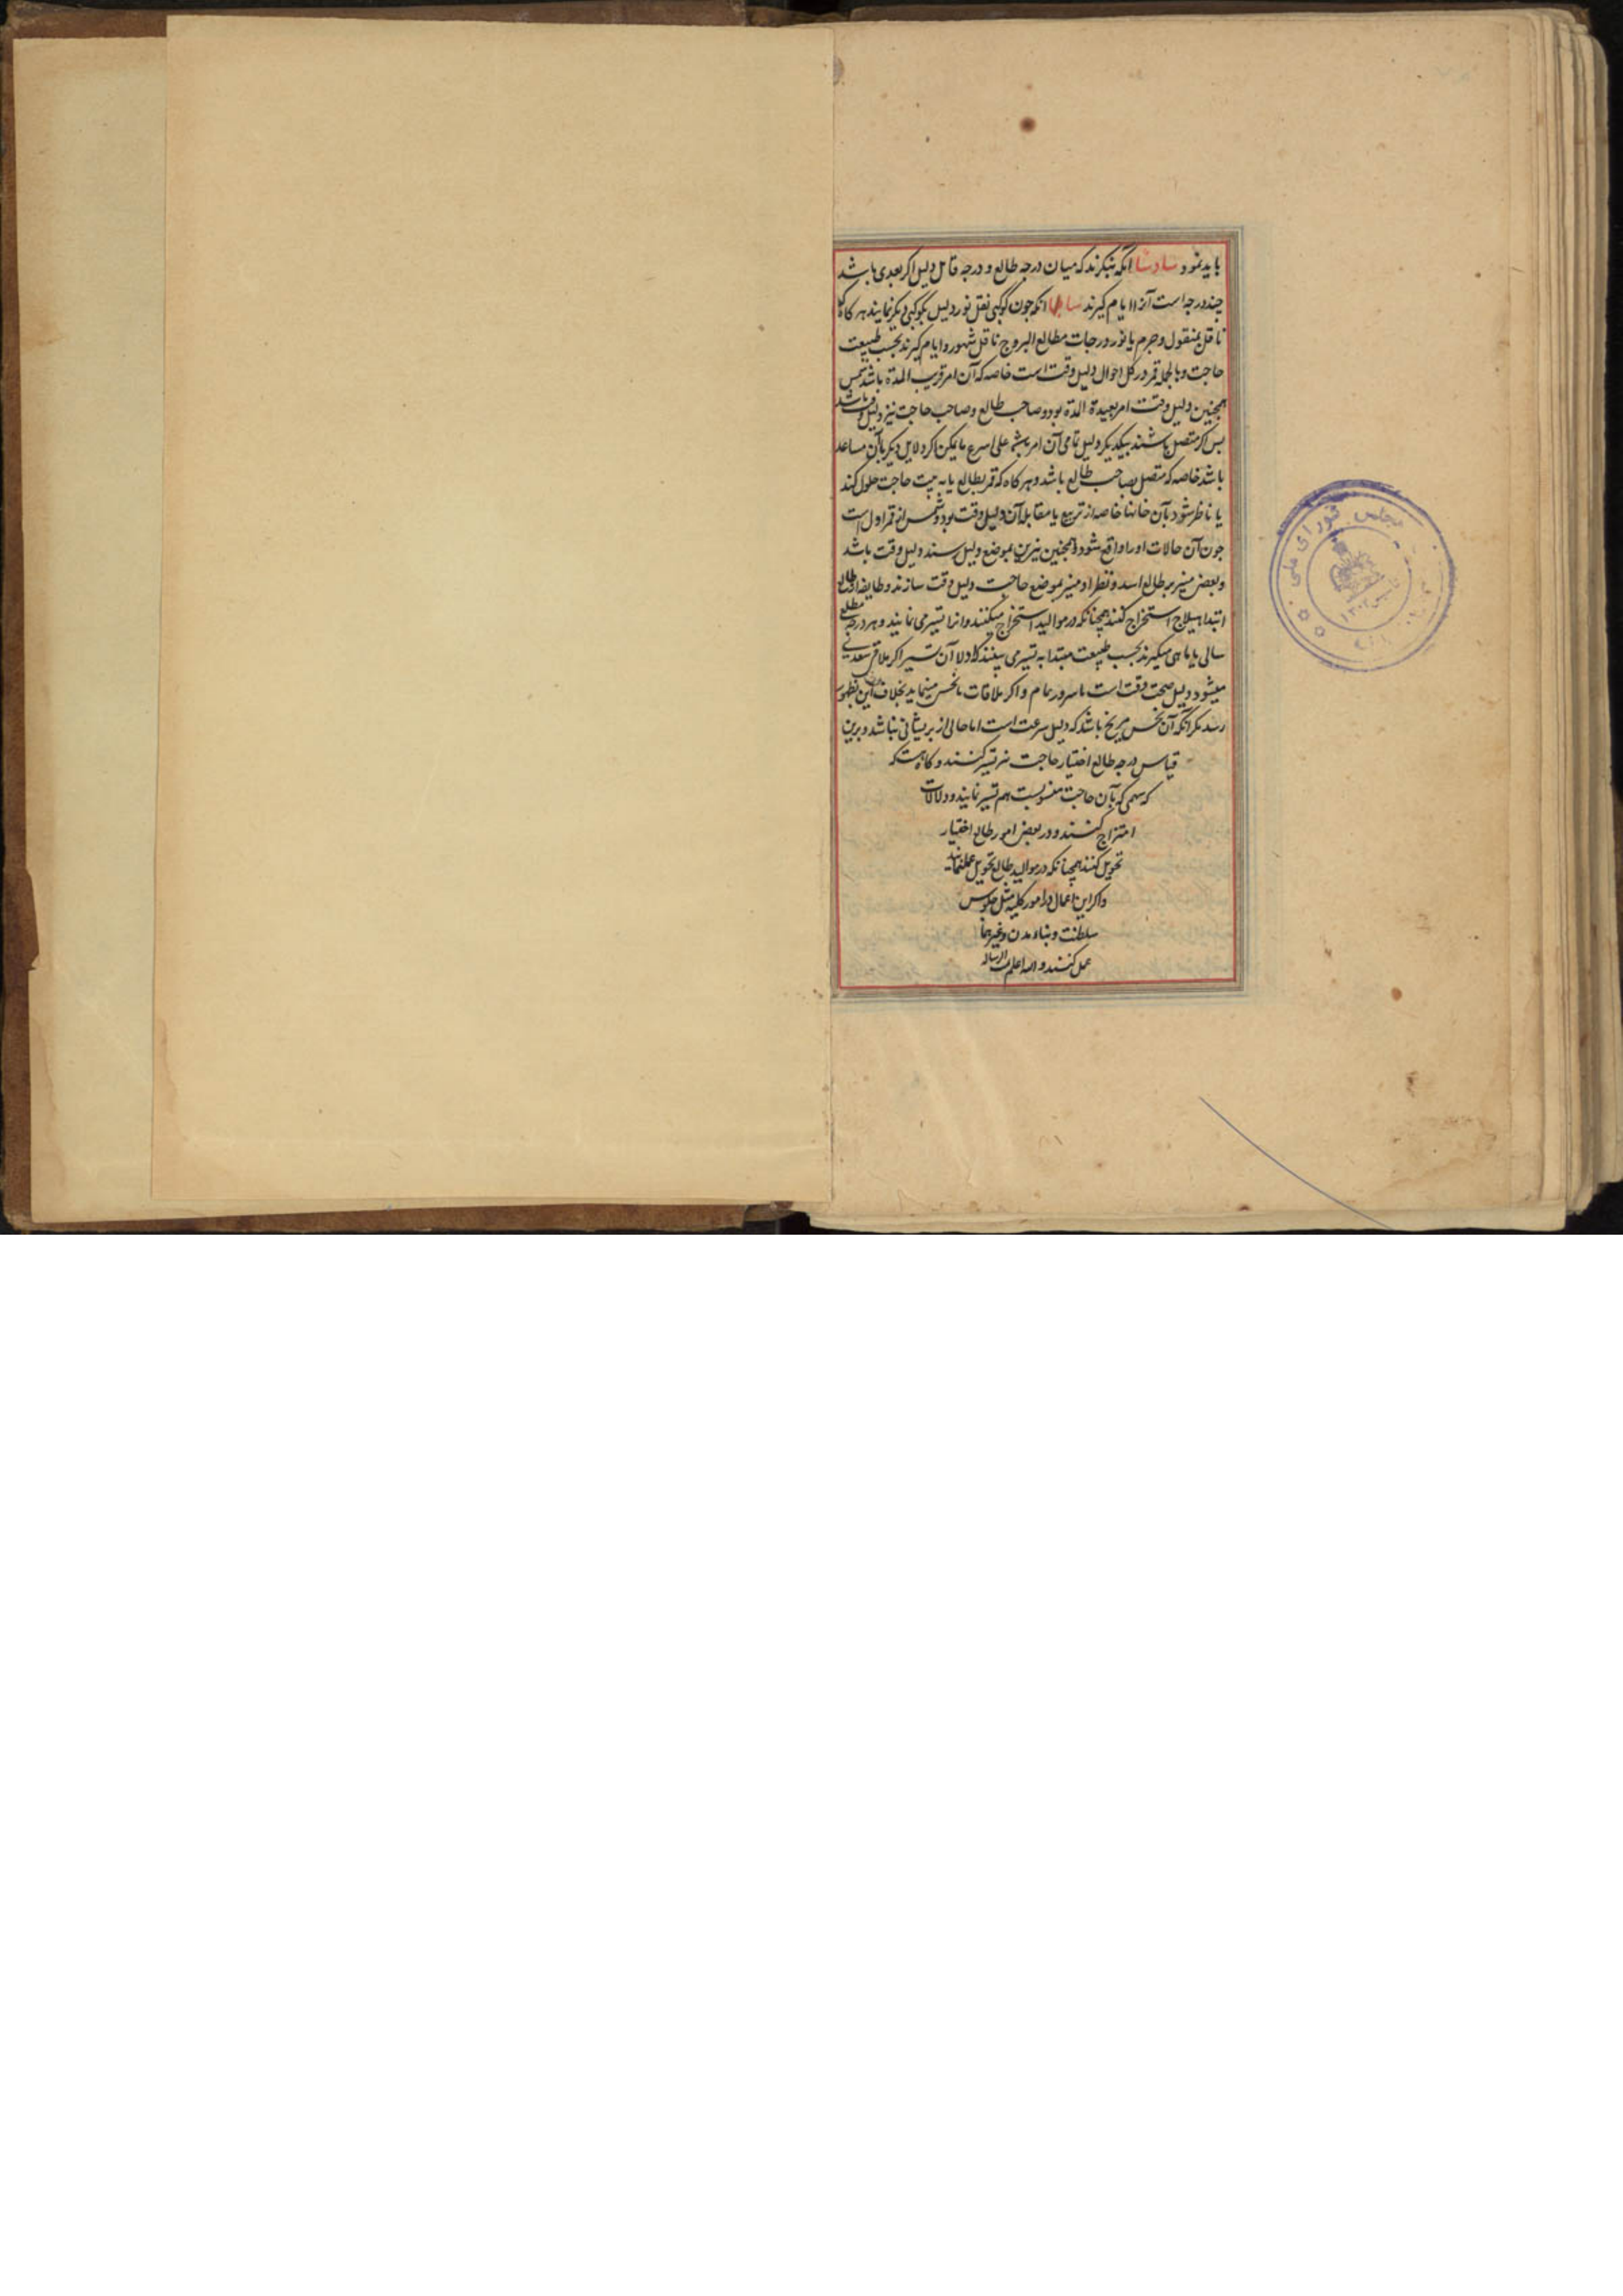 باید نمود سادسا آنکه بنکرند که میان درجه طالع و درجه قابل دلیل اکر بعدی باشد
چند درجه است آنرا ایام کیرند سابعا آنکه چون کوکبی نقل نور دلیل بکوکبی دیکر نمایند هر کاه که
ناقل بمنقول و جرم یا نور درجات مطالع البروج ناقل شهور و ایام کیرند بحسب طبیعت
حاجت و بالجمله قمر در کل احوال دلیل وقت است خاصه که آن امر قریب المدة باشد شمس
همچنین دلیل وقت امر بعیدة المدة بود و صاحب طالع و صاحب حاجت نیز دلیل وقت باشد
پس اکر متصل باشند بیکدیکر دلیل تمامی آن امر باشد علی اسرع مایمکن اکر دلایل دیکر بآن مساعد
باشد خاصه که متصل بصاحب طالع باشد و هر کاه که قمر بطالع یا به بیت حاجت حلول کند
یا ناظر شود بآن خانها خاصه از تربیع یا مقابله آن دلیل وقت بود و شمس از قمر اول است
چون آن حالات اورا واقع شود و همچنین نیرین بموضع دلیل رسند دلیل وقت باشد
و بعضی منیر بر طالع اسد و نظر او منیر بموضع حاجت دلیل وقت سازند و طایفه
ابتدا هیلاج استخراج کنند همچنانکه در موالید استخراج میکنند و انرا تسییر می نمایند و هر درجه مطلع
سالی یا ماهی میکیرند بحسب طبیعت مبتدا به تسییر می بینند که اولا آن تسییر اکر ملاقی سعدی
میشود دلیل صحت وقت است با سرور تمام و اکر ملاقات با نحس مینماید بخلاف این بظهور
رسد مکر آنکه آن نحس مریخ باشد که دلیل سرعت است اما خالی از پریشانی نباشد و برین
قیاس درجه طالع اختیار حاجت نیز تسییر کنند و کاه هست که
که سهمی که بآن حاجت منسوبست هم تسییر نمایند و دلالات
امتزاج کنند و در بعضی امور طالع اختیار
تحویل کنند همچنانکه در موالید طالع تحویل عمل نمایند
و اکر این اعمال در امور کلیه مثل جلوس
سلطنت و بناء مدن و غیرهما
عمل کنند و الله اعلم تمت الرساله
مجلس شورای ملی
۱۳۰۲